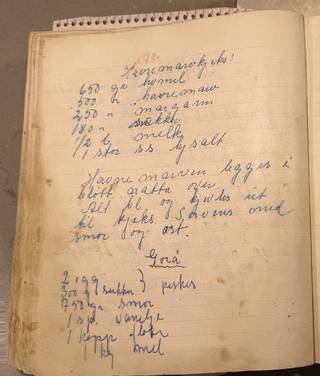 Havremarvkjeks!
650 gr hvmel
500 " havremarv
250 " margarin
180 " sukker
1/2 l melk
1 stor ss. hj.salt
Havremarven legges i
bløtt natta over.
Alt bl. og kjevles ut
til kjeks. Serveres med
smør og ost.
Gorå
2 egg
300 g sukker } piskes
750 gr smør
1 sp. vanilje
1 kopp
1 kg mel